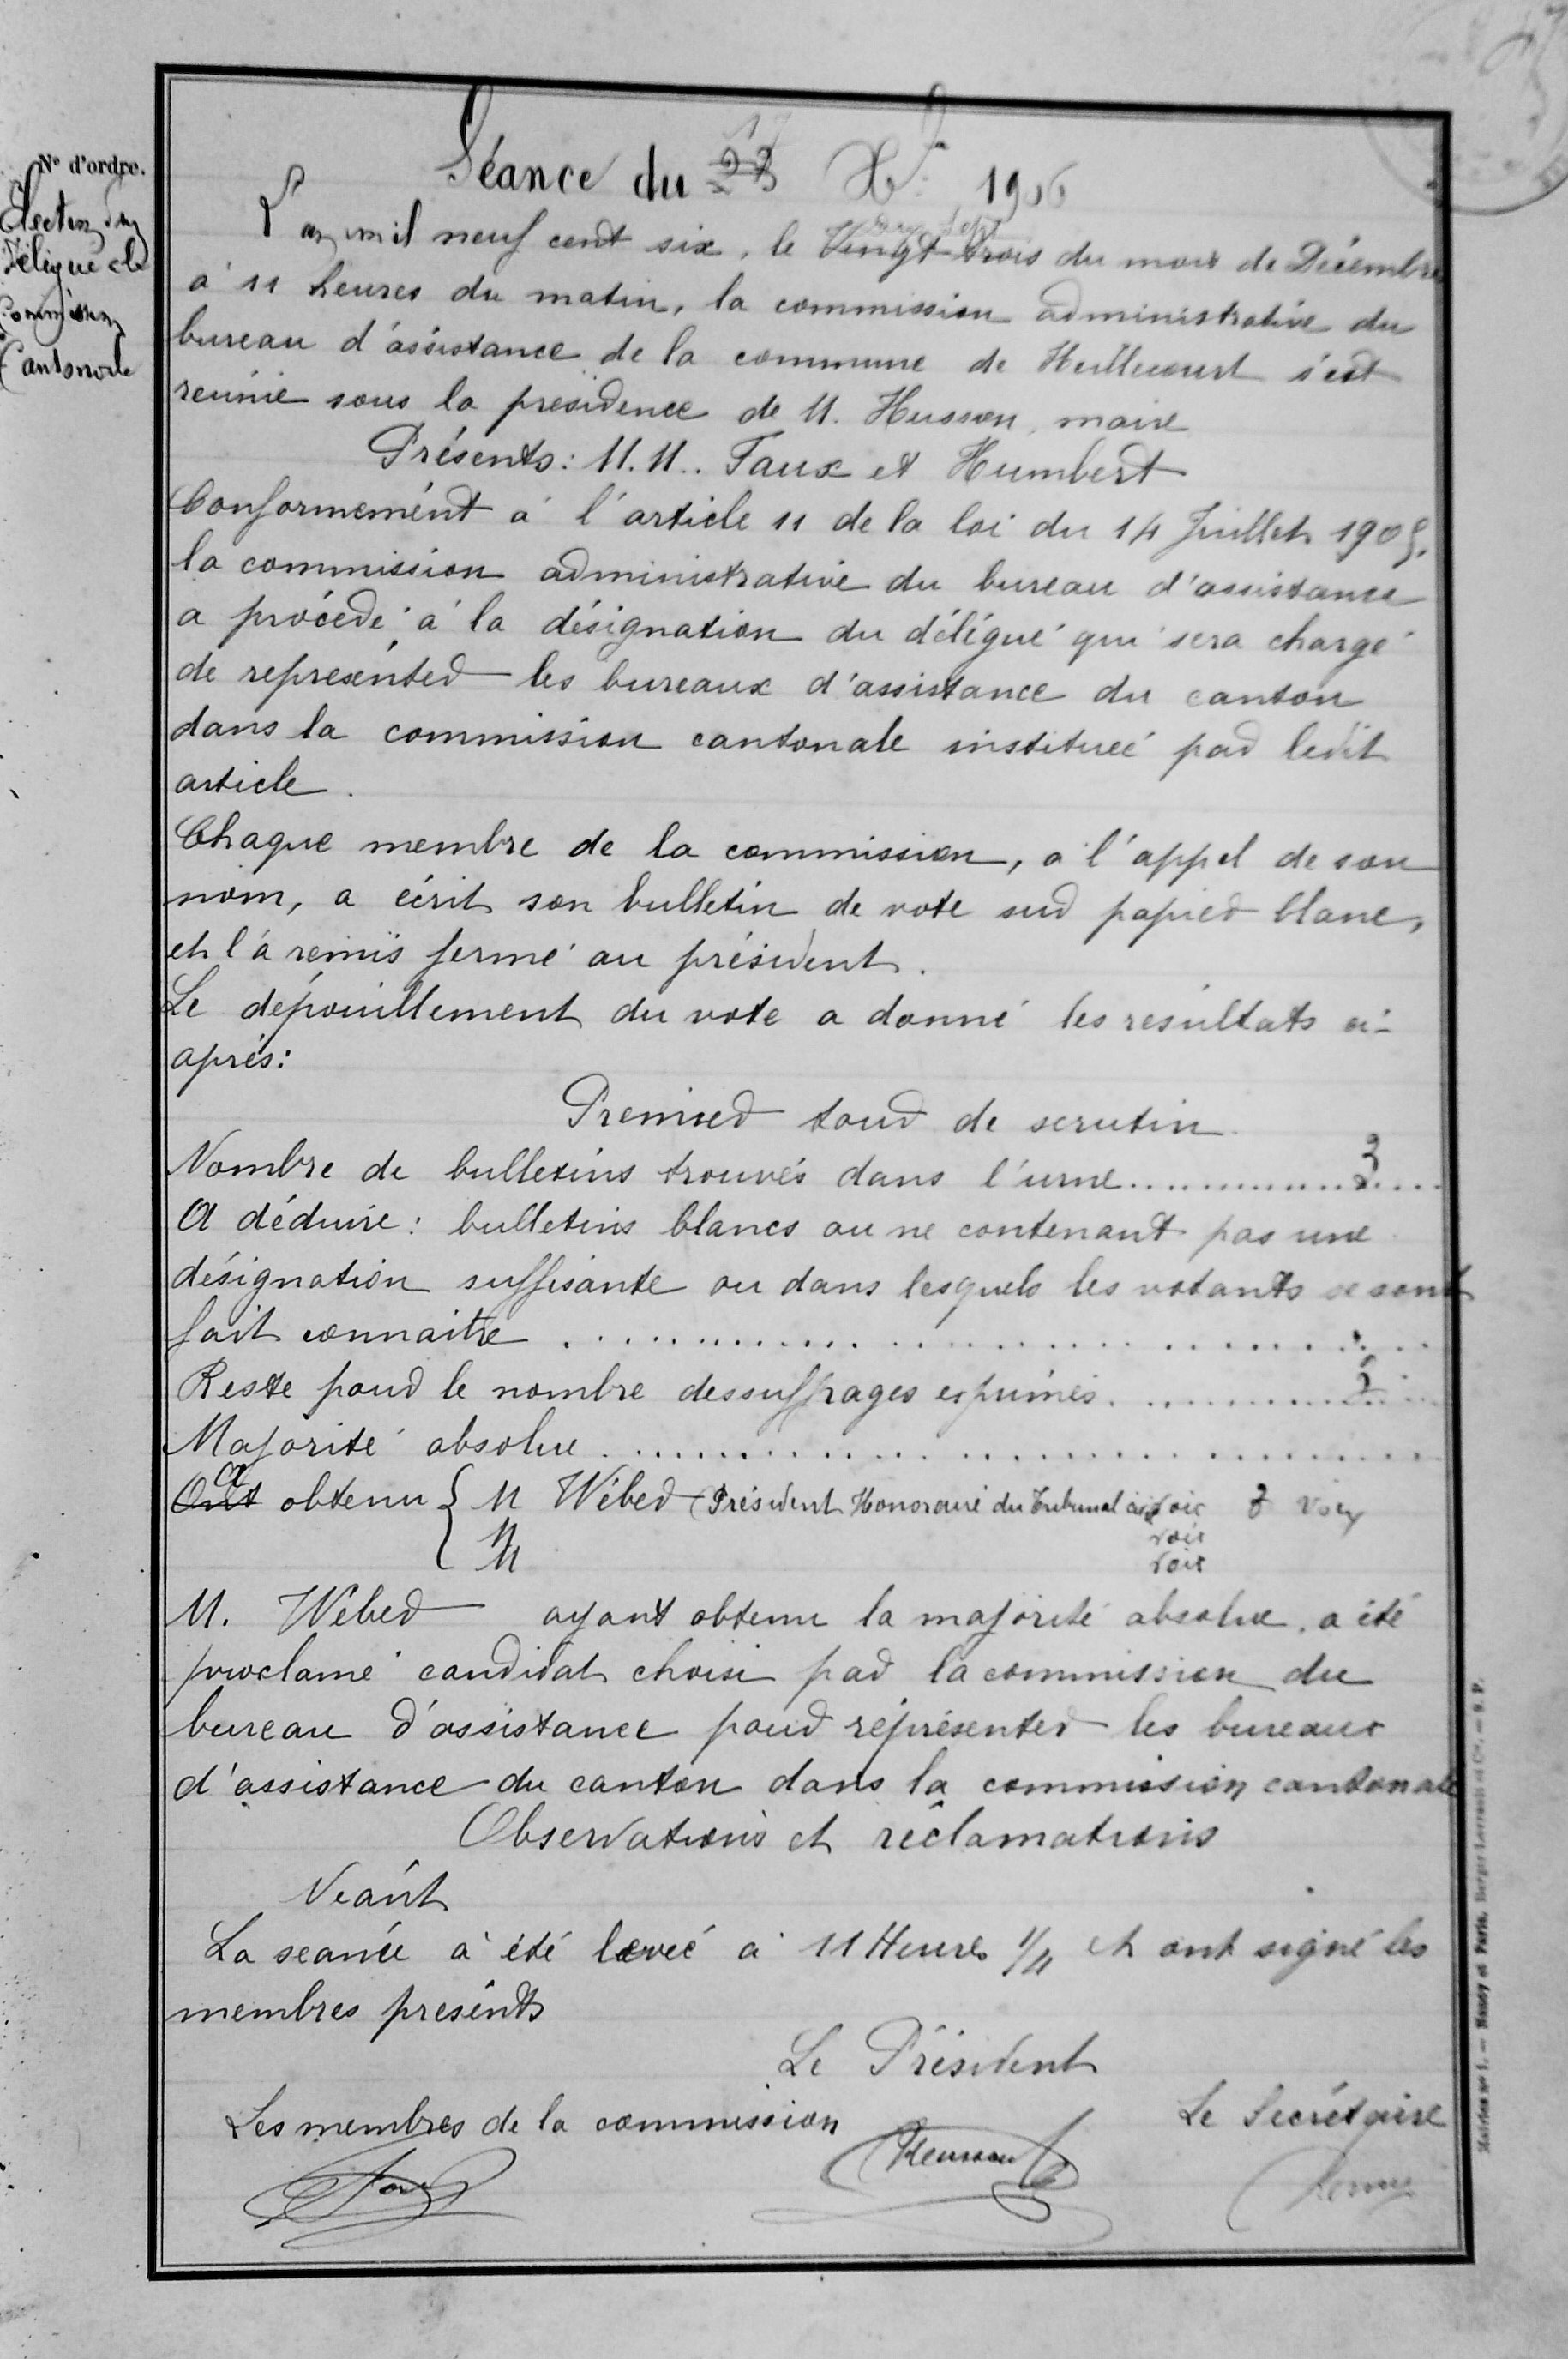 N° d'ordre.
Election d'un
Délégué à la
Commission
Cantonale
Séance du 23 17 Xbre 1906
L'an mil neuf cent six, le Vingt trois dix sept du mois de Décembre
à 11 heures du matin, la commission administrative du
bureau d'assistance de la commune de Heillecourt s'est
réunie sous la présidence de M. Husson, maire
Présents: M.M.. Faux et Humbert
Conformément à l'article 11 de la loi du 14 Juillet 1905,
la commission administrative du bureau d'assistance
a procédé à la désignation du délégué qui sera chargé
de représenter les bureaux d'assistance du canton
dans la commission cantonale instituée par ledit
article.
Chaque membre de la commission, à l'appel de son
nom, a écrit son bulletin de vote sur papier blanc,
et l'a remis fermé au président.
Le dépouillement du vote a donné les résultats ci-
après:
Premier tour de scrutin
Nombre de bulletins trouvés dans l'urne.................3....
A déduire: bulletins blancs ou ne contenant pas une
désignation suffisante ou dans lesquels les votants se sont
fait connaitre ........................
Reste pour le nombre des suffrages exprimés. ............3....
Majorité absolue........................
Ont a obtenu { M Wéber Président Honoraire du Tribunal civil voix 3 voix
M voix
M voix
M. Wéber ayant obtenu la majorité absolue, a été
proclamé candidat choisi par la commission du
bureau d'assistance pour représenter les bureaux
d'assistance du canton dans la commission cantonale
Observations et réclamations
Néant
La séance a été levée à 11 Heures 1/4 et ont signé les
membres présents
Le Président
Les membres de la commission
Le Secrétaire
Faux
Husson
Mairies n° 1. — Nancy et Paris, Berger-Levrault et Cie. — 9 P.